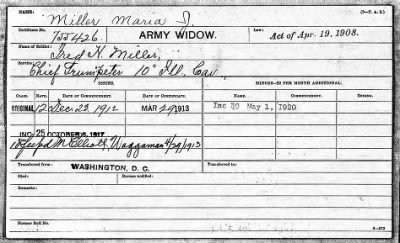 NAME: Miller Maria D. (3—P. A. S.)
Certificate No. 755426. ARMY WIDOW. Law: Act of Apr. 19, 1908.
Name of Soldier: Fred K. Miller,
Service: Chief Trumpeter 10" Ill. Cav.
ISSUES. MINORS—$2 PER MONTH ADDITIONAL.
CLASS. RATE. COMMENCEMENT. DATE OF CERTIFICATE. CLASS. COMMENCEMENT. DATE OF CERTIFICATE.
ORIGINAL 12 Dec. 23, 1912 MAR 29 1913 Inc 30 May 1, 1920
INC. 25 OCTOBER 6, 1917
M. Elliott, Waggaman 4/29/1913
Transferred from: WASHINGTON, D. C. Transferred to:
Died: Bureau notified:
Remarks:
Former Roll No.